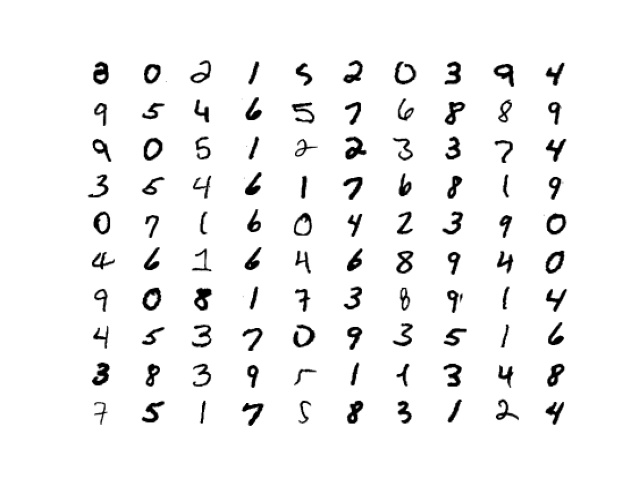 8 0 2 1 5 2 0 3 9 4
9 5 4 6 5 7 6 8 8 9
9 0 5 1 2 2 3 3 7 4
3 5 4 6 1 7 6 8 1 9
0 7 1 6 0 4 2 3 9 0
4 6 1 6 4 6 8 9 4 0
9 0 8 1 7 3 8 9 1 4
4 5 3 7 0 9 3 5 1 6
3 8 3 9 5 1 1 3 4 8
7 5 1 7 5 8 3 1 2 4